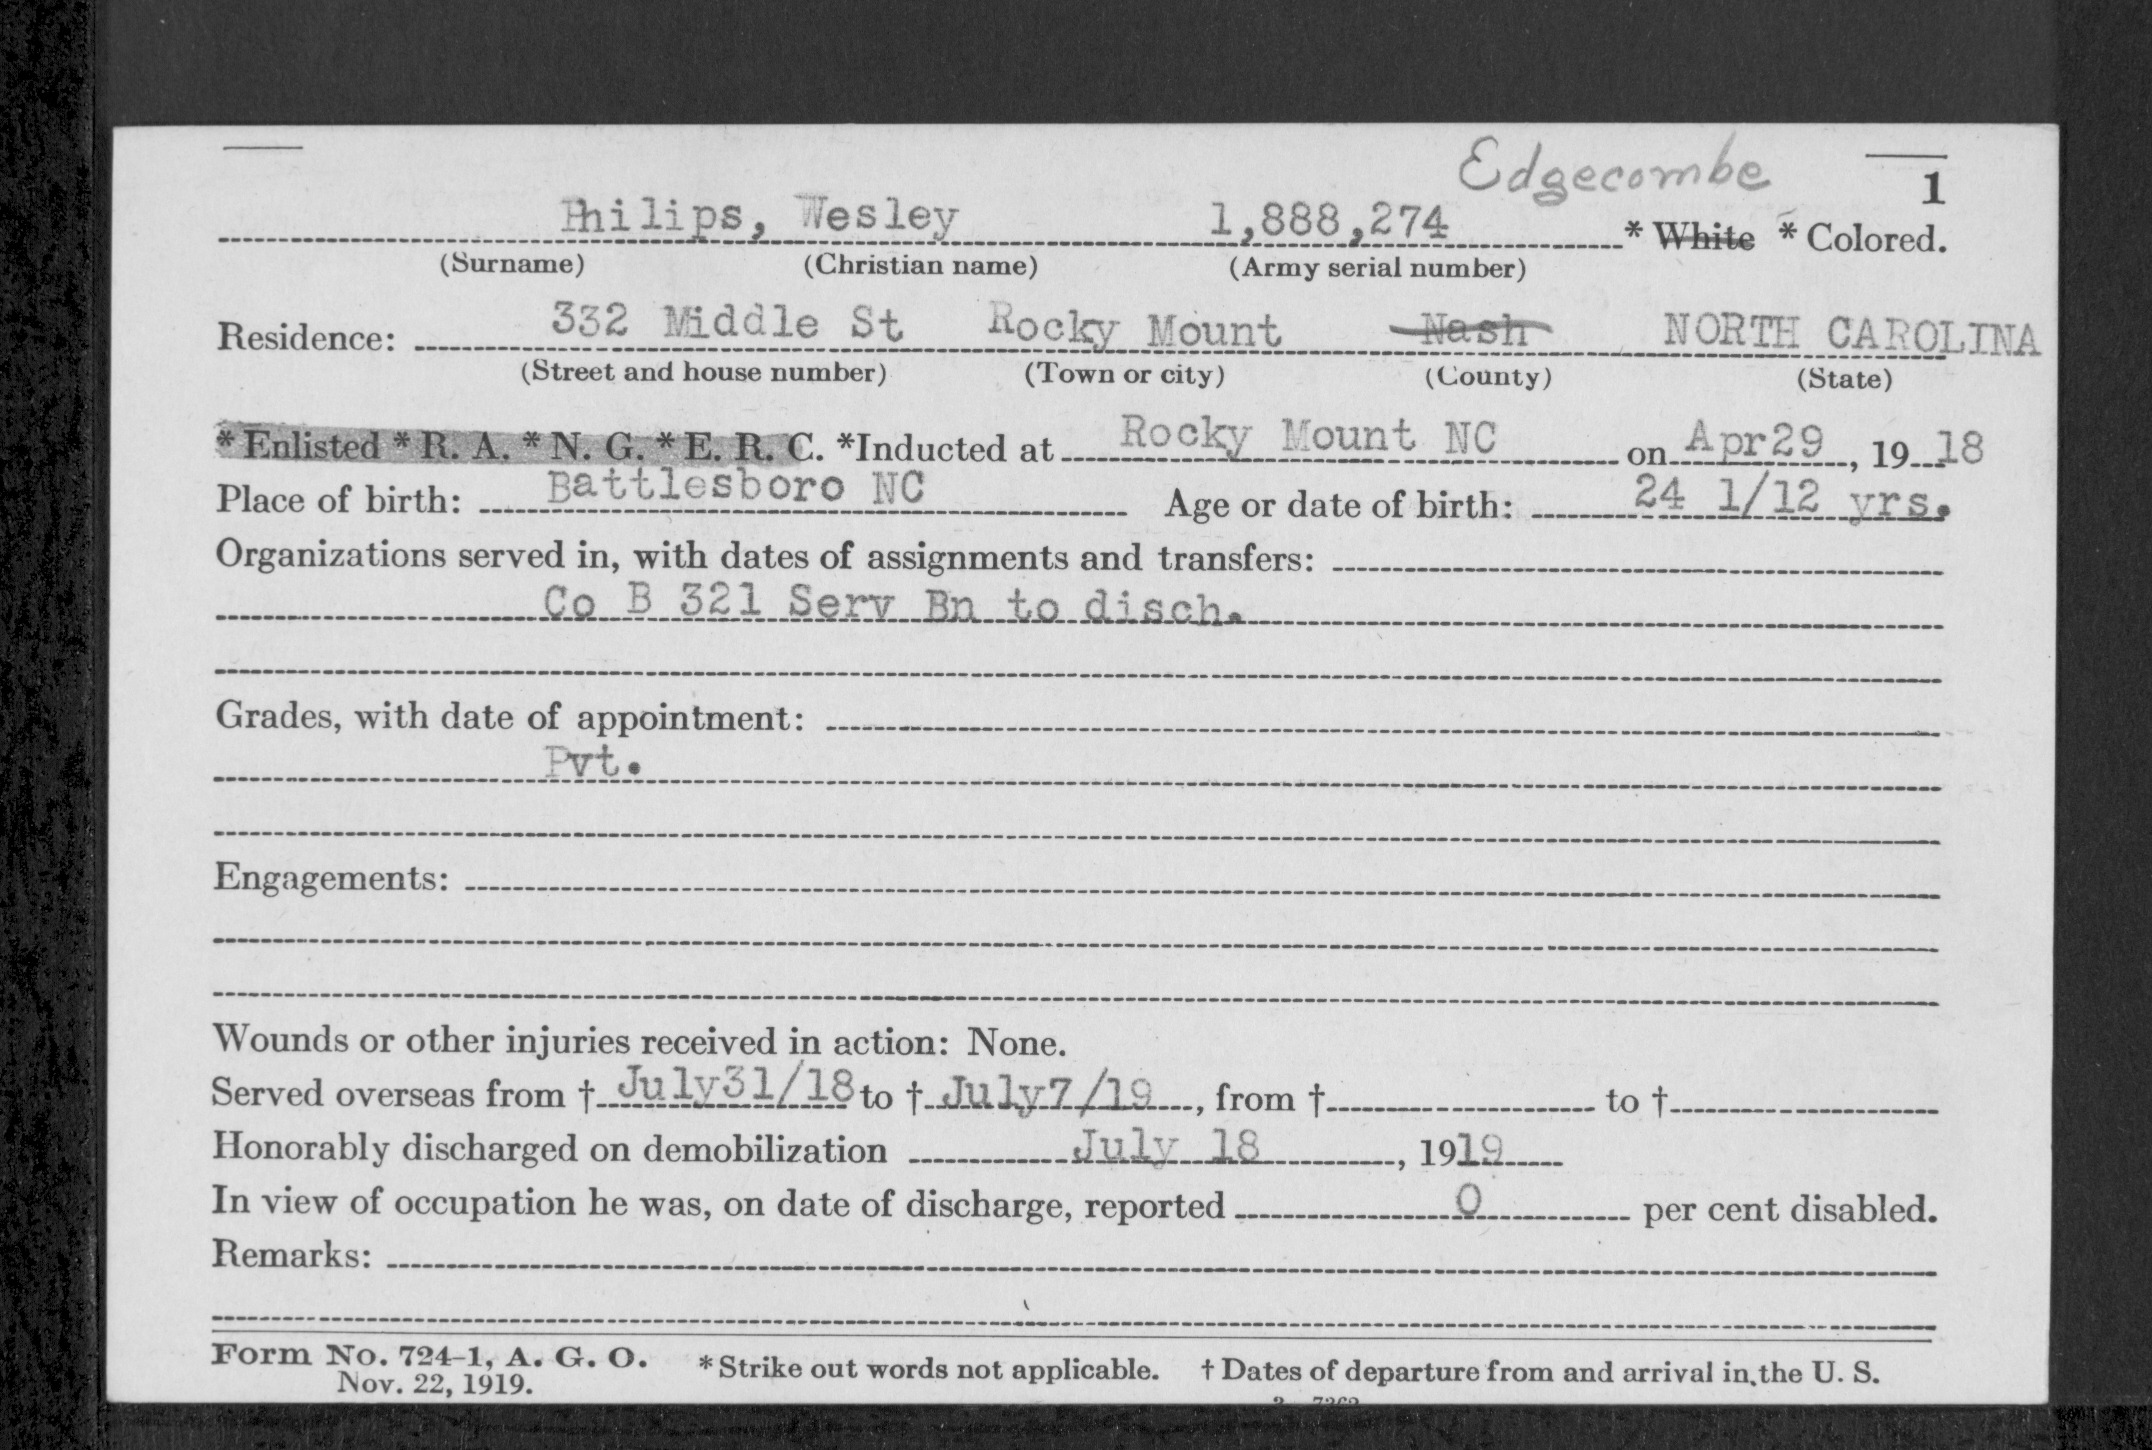 Edgecombe
1
Philips, Wesley 1,888,274 * White * Colored.
(Surname) (Christian name) (Army serial number)
Residence: 332 Middle St Rocky Mount Nash NORTH CAROLINA
(Street and house number) (Town or city) (County) (State)
* Enlisted * R. A. * N. G. * E. R. C. *Inducted at Rocky Mount NC on Apr29, 1918
Place of birth: Battlesboro NC Age or date of birth: 24 1/12 yrs.
Organizations served in, with dates of assignments and transfers:
Co B 321 Serv Bn to disch.
Grades, with date of appointment:
Pvt.
Engagements:
Wounds or other injuries received in action: None.
Served overseas from † July31/18 to † July7/19, from † to †
Honorably discharged on demobilization July 18, 1919
In view of occupation he was, on date of discharge, reported 0 per cent disabled.
Remarks:
Form No. 724-1, A. G. O. * Strike out words not applicable. † Dates of departure from and arrival in the U. S.
Nov. 22, 1919.